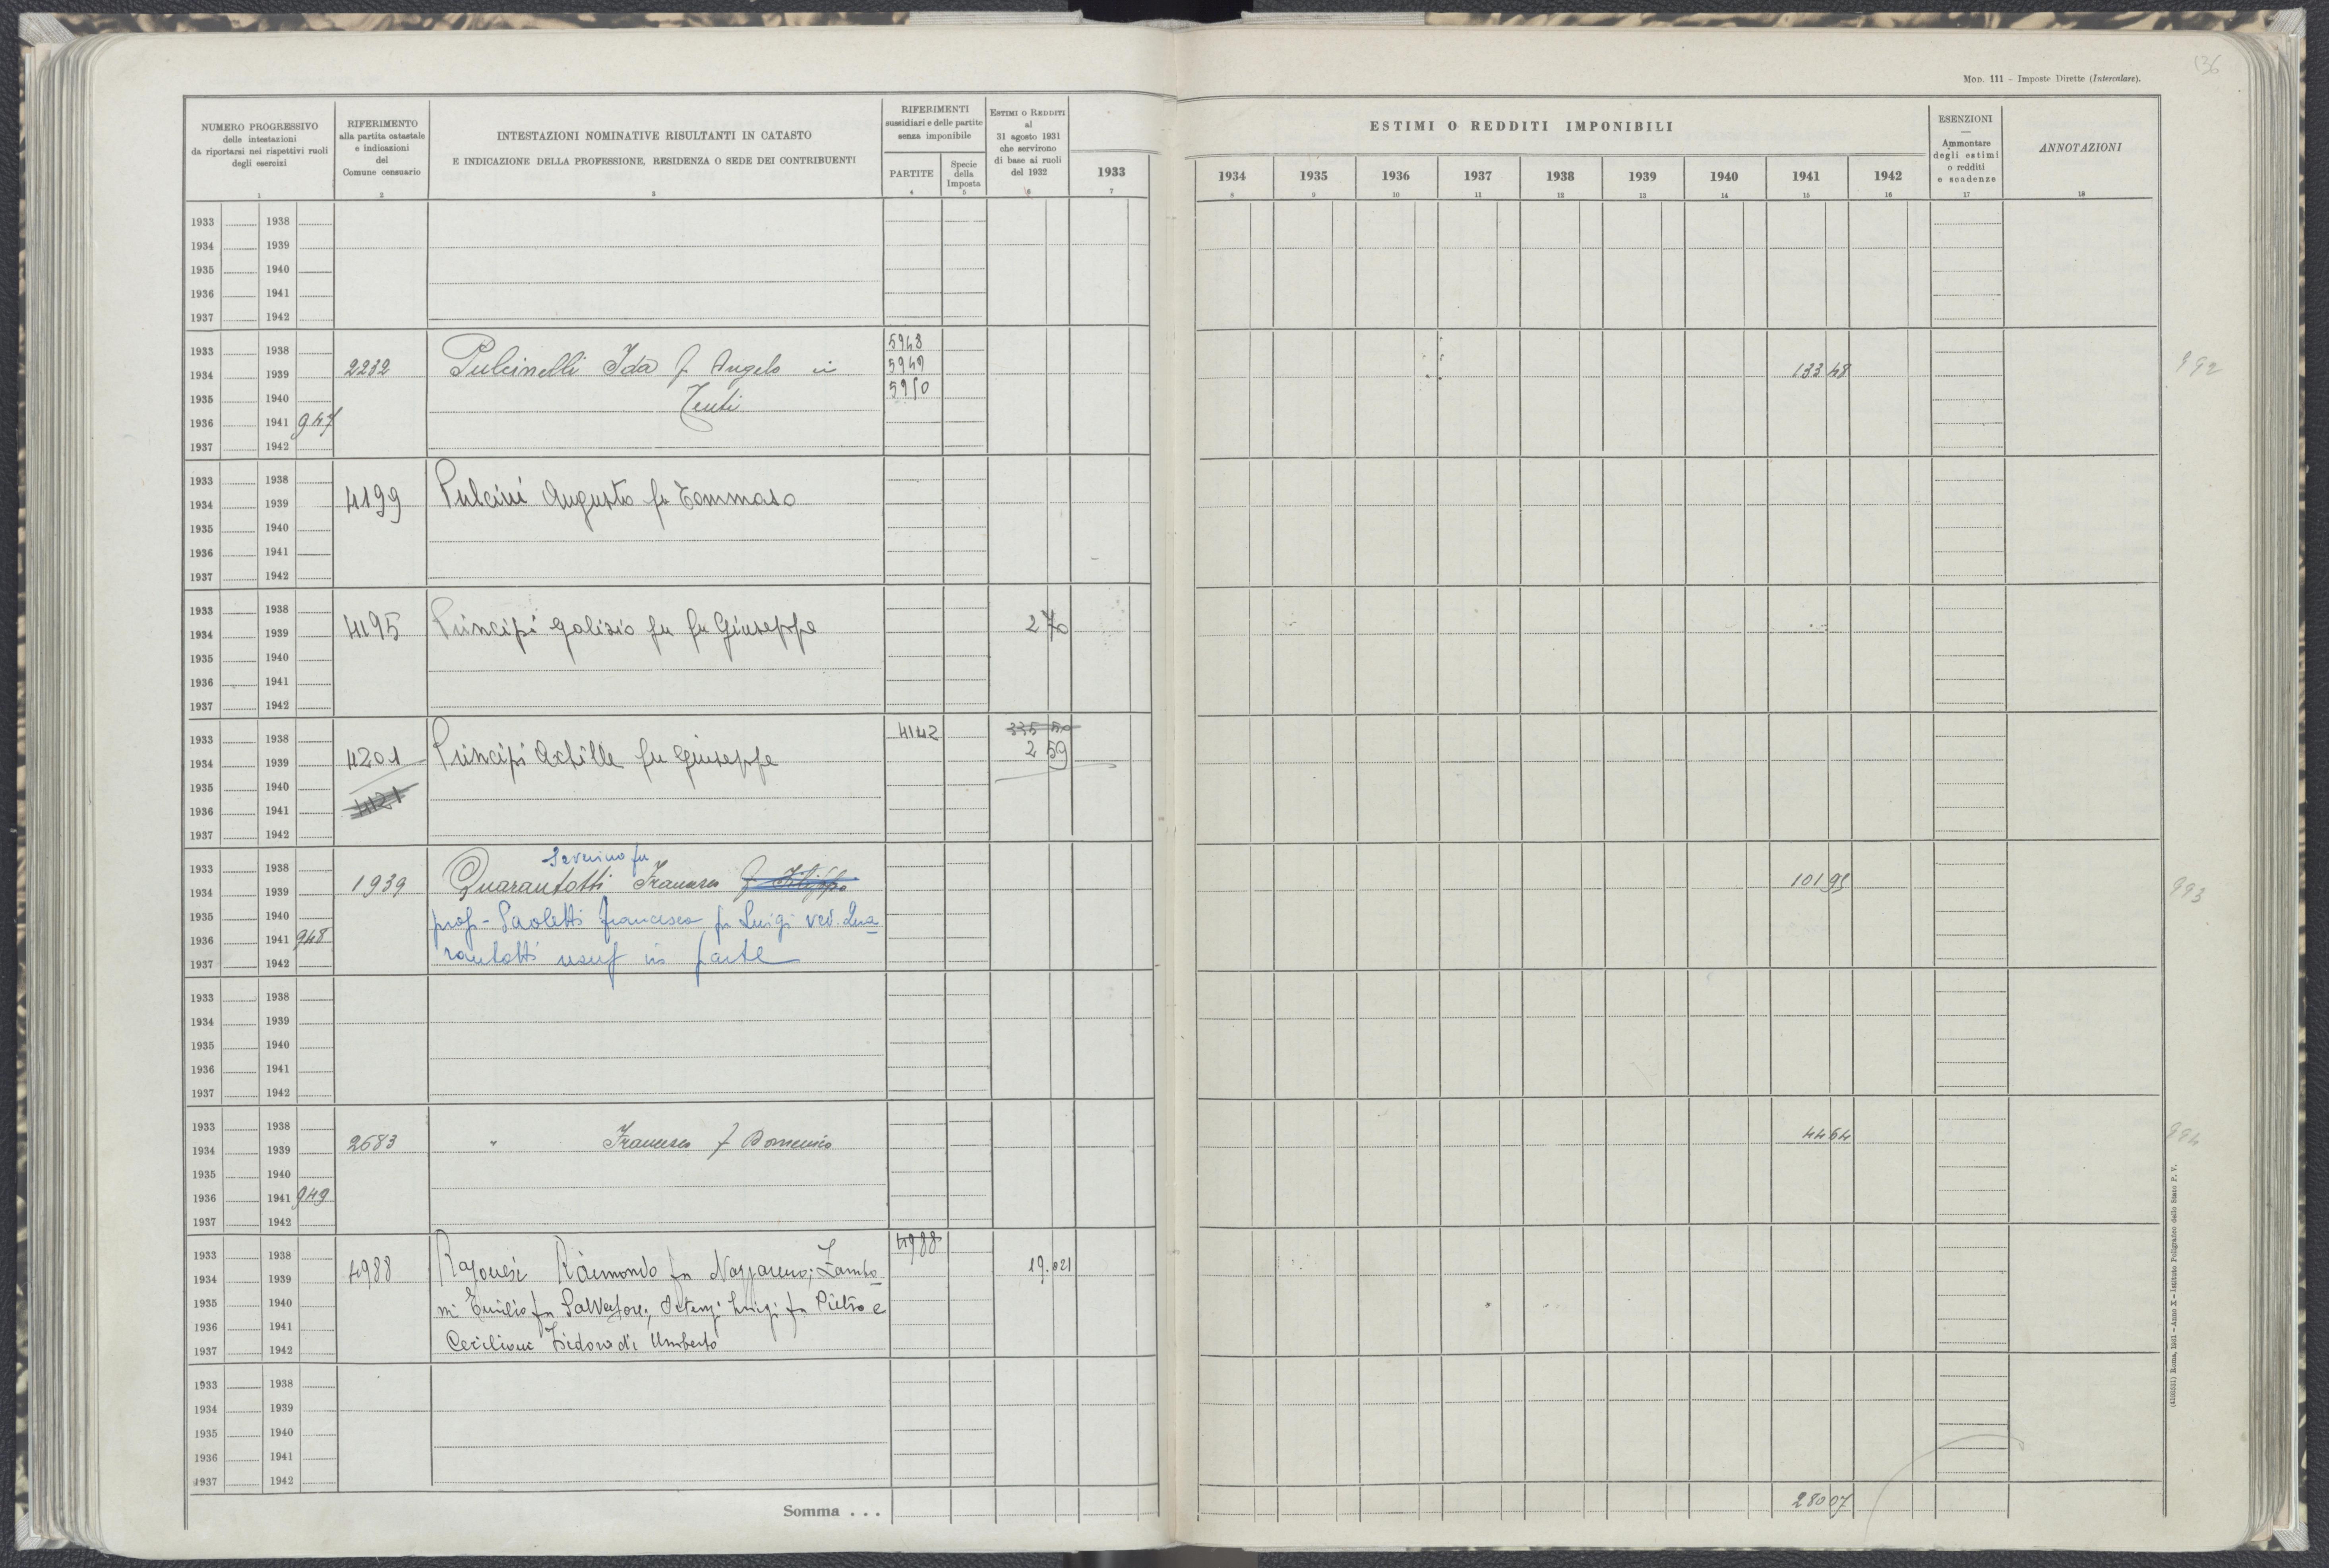 Mod. 111 - Imposte Dirette (Intercalare).
136
NUMERO PROGRESSIVO
delle intestazioni
da riportarsi nei rispettivi ruoli
degli esercizi
1
RIFERIMENTO
alla partita catastale
e indicazioni
del
Comune censuario
2
INTESTAZIONI NOMINATIVE RISULTANTI IN CATASTO
E INDICAZIONE DELLA PROFESSIONE, RESIDENZA O SEDE DEI CONTRIBUENTI
3
RIFERIMENTI
sussidiari e delle partite
senza imponibile
PARTITE
4
Specie
della
Imposta
5
Estimi o Redditi
al
31 agosto 1931
che servirono
di base ai ruoli
del 1932
6
1933
7
ESTIMI O REDDITI IMPONIBILI
1934 1935 1936 1937 1938 1939 1940 1941 1942
8 9 10 11 12 13 14 15 16
ESENZIONI
—
Ammontare
degli estimi
o redditi
e scadenze
17
ANNOTAZIONI
18
1933 1938
1934 1939
1935 1940
1936 1941
1937 1942
1933 1938 5948
1934 1939 2232 Pulcinelli Ida f Angelo in 5949 133 48 992
1935 1940 Tenti 5950
1936 1941 947
1937 1942
1933 1938
1934 1939 4199 Pulcini Augusto fu Tommaso
1935 1940
1936 1941
1937 1942
1933 1938
1934 1939 4195 Principi galisio fu fu Giuseppe 2 70
1935 1940
1936 1941
1937 1942
1933 1938 4142 335 50
1934 1939 4201 Principi Achille fu Giuseppe 2 59
1935 1940
1936 1941 4121
1937 1942
1933 1938 Severino fu
1934 1939 1939 Quarantotti Francesco f Filippo 101 95 993
1935 1940 prop - Paoletti Francesca fu Luigi ved. Qua
1936 1941 948
1937 1942 rantotti usuf in parte
1933 1938
1934 1939
1935 1940
1936 1941
1937 1942
1933 1938
1934 1939 2683 " Francesco f Domenico 44 64 994
1935 1940
1936 1941 949
1937 1942
1933 1938 4988
1934 1939 4988 Ragonesi Raimondo fu Nazzareno; Zambo 19.021
1935 1940 ni Emilio fu Salvatore; Luigi fu Pietro e
1936 1941
1937 1942 Isidoro di Umberto
1933 1938
1934 1939
1935 1940
1936 1941
1937 1942
Somma . . . 280 07
(4193531) Roma, 1931 - Anno X - Istituto Poligrafico dello Stato P. V.